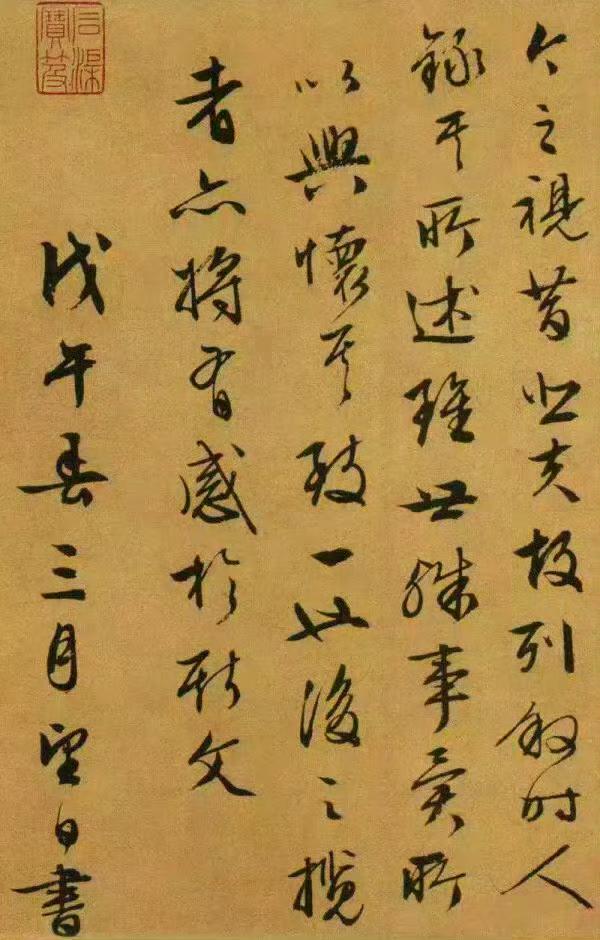 今之視昔悲夫故列叙时人
錄其所述雖世殊事異所
以興懷其致一也後之攬
者亦將有感於斯文
戊午春三月望日書
石渠寶笈